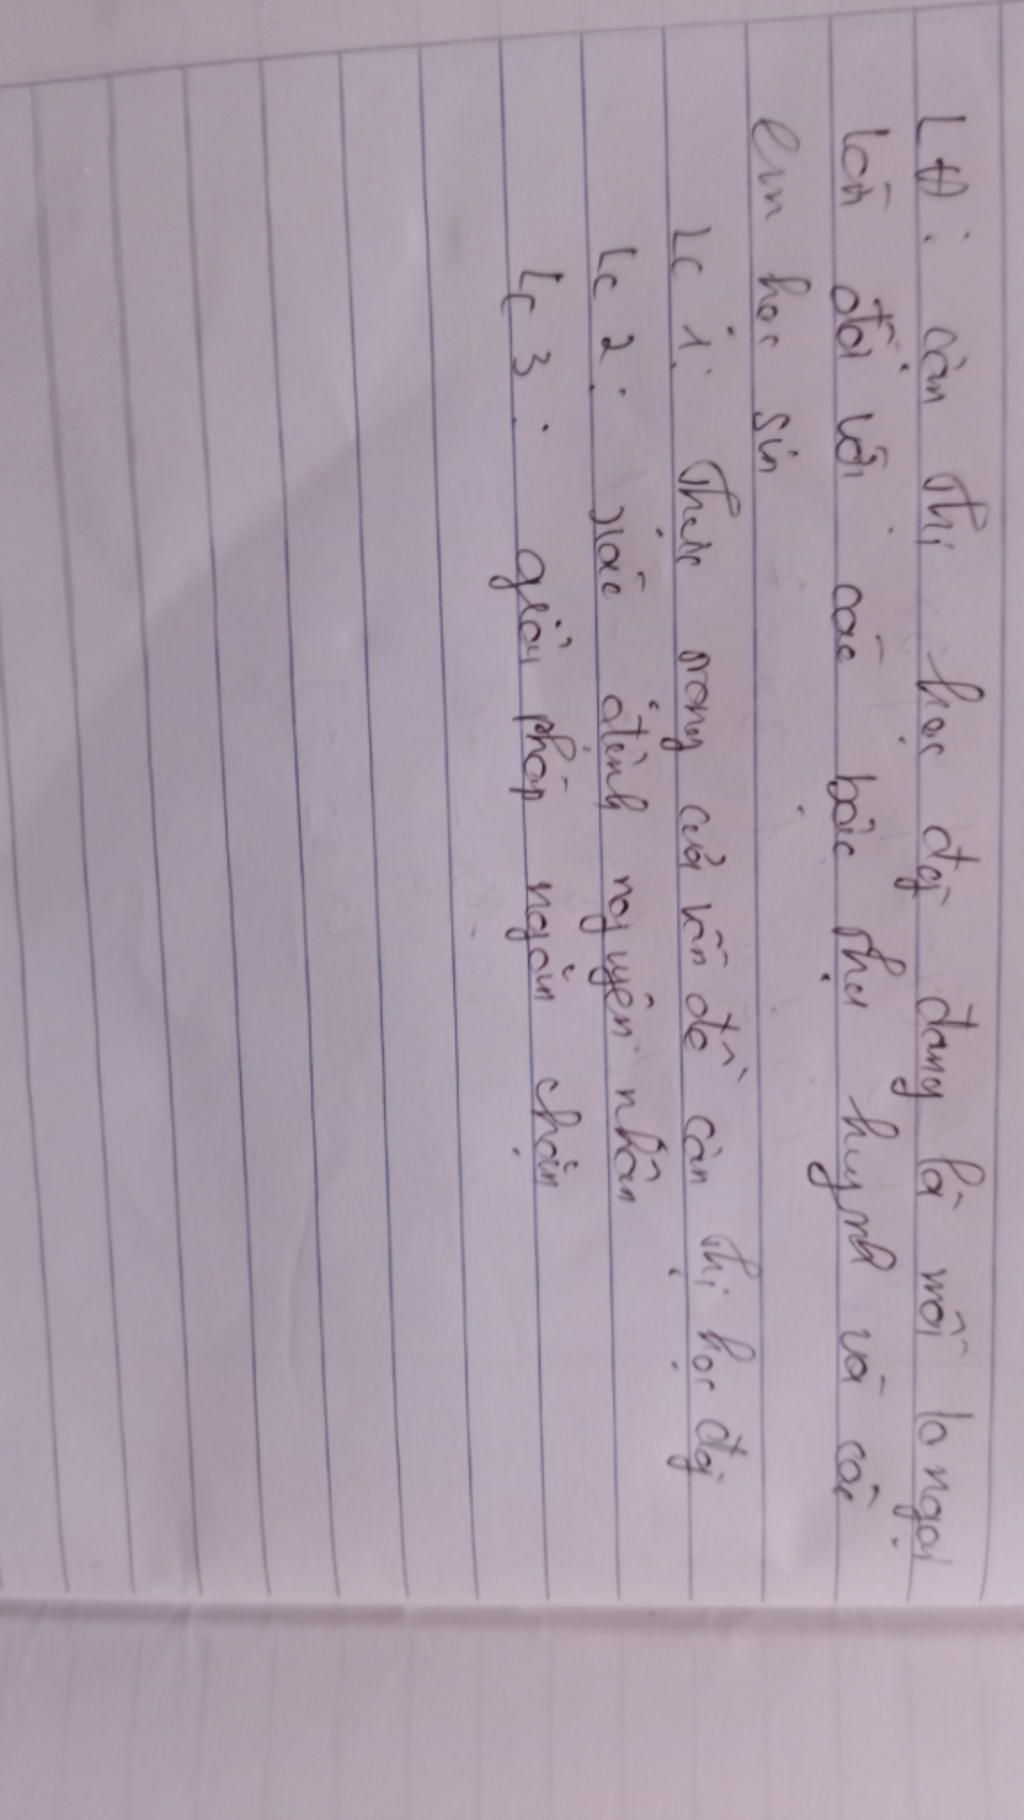 LĐ: cận thị học đg đang là mối lo ngại
lớn đối với các bậc phụ huynh và các
em học sin
Lc 1: Thực trạng của vấn đề cận thị học đg
Lc 2: xác định nguyên nhân
Lc 3: giải pháp ngăn chặn